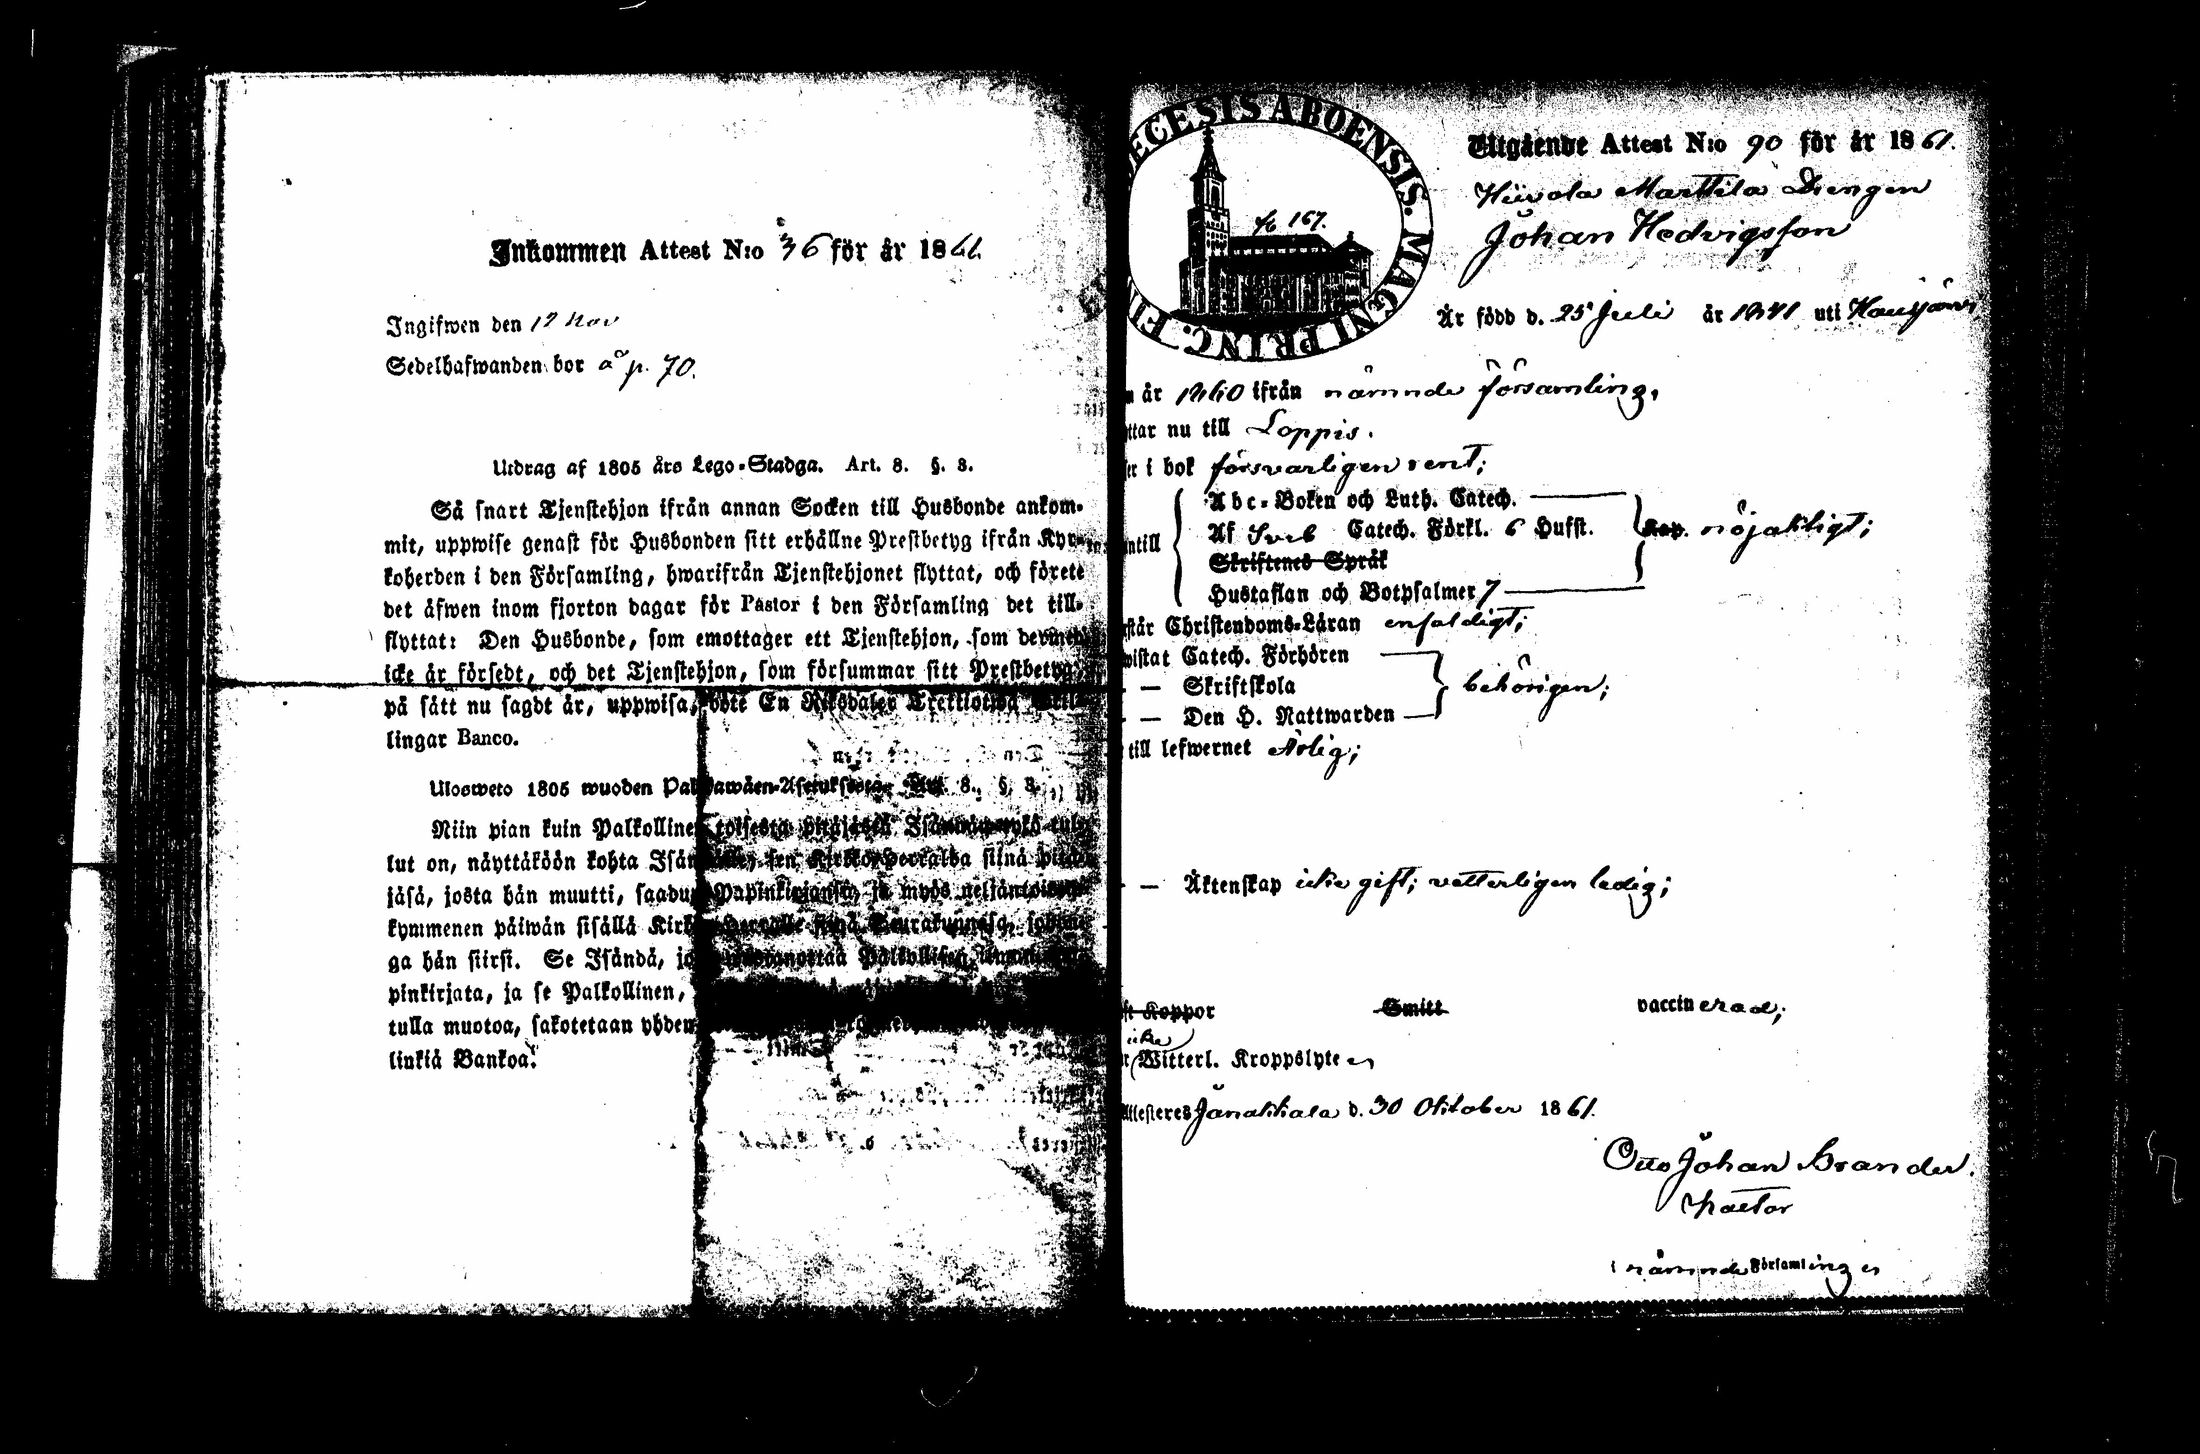 Inkommen Attest N:o 36 för år 1861.
Ingifwen den 12 Nov
Sedelhafwanden bor å p. 70.
Utdrag af 1805 års Lego-Stadga. Art. 8. §. 3.
Så snart Tjenstehjon ifrån annan Socken till Husbonde ankom-
mit, uppwise genast för Husbonden sitt erhållne Prestbetyg ifrån Kyr-
koherden i den Församling, hwarifrån Tjenstehjonet flyttat, och förete
det äfwen inom fjorton dagar för Pastor i den Församling det till-
flyttat: Den Husbonde, som emottager ett Tjenstehjon, som dermed
icke är försedt, och det Tjenstehjon, som försummar sitt Prestbetyg,
på sätt nu sagdt är, uppwisa, böte En Riksdaler Trettiotwå Skil-
lingar Banco.
Ulosweto 1805 wuoden Palkkawäen-Asetuksesta. Art. 8. §. 3.
Niin pian kuin Palkollinen toisesta pitäjästä Isännän tykö tul-
lut on, näyttäköön kohta Isännälle, sen Kirkkoherralda siinä pitä-
jäsä, josta hän muutti, saadun Papinkirjansa, ja myös neljäntoista
kymmenen päiwän sisällä Kirkkoherralle siinä Seurakunnasa, johon-
ga hän siirsi. Se Isändä, joka wastanottaa Palkollisen ilman
pinkirjata, ja se Palkollinen,
tulla muotoa, sakotetaan yhden
linkiä Bankoa.
DECESIS ABOENSIS. MAGNI PRINC. FIN
fo 167.
Utgående Attest N:o 90 för år 1861.
Hiivola Marttila Drengen
Johan Hedvigsson
Är född d. 25 Juli år 1841 uti Hausjärvi
år 1860 ifrån nämnde församling,
ttar nu till Loppis.
i bok försvarligen rent;
Abc-Boken och Luth. Catech.
ntill Af Sveb Catech. Förkl. 6 Hufst. Kap. nöjaktigt;
Skriftenes Språk
Hustaflan och Botpsalmer 7
står Christendoms-Läran enfaldigt;
wistat Catech. Förhören
— Skriftskola behörigen;
— Den H. Nattwarden
till lefwernet Ärlig;
— Äktenskap icke gift; vetterligen ledig;
Koppor Smitt vaccinerad;
icke
Witterl. Kroppslyten
Attesteres Janakkala d. 30 Oktober 1861.
Otto Johan Brander.
Pastor
i nämnde Församlingen